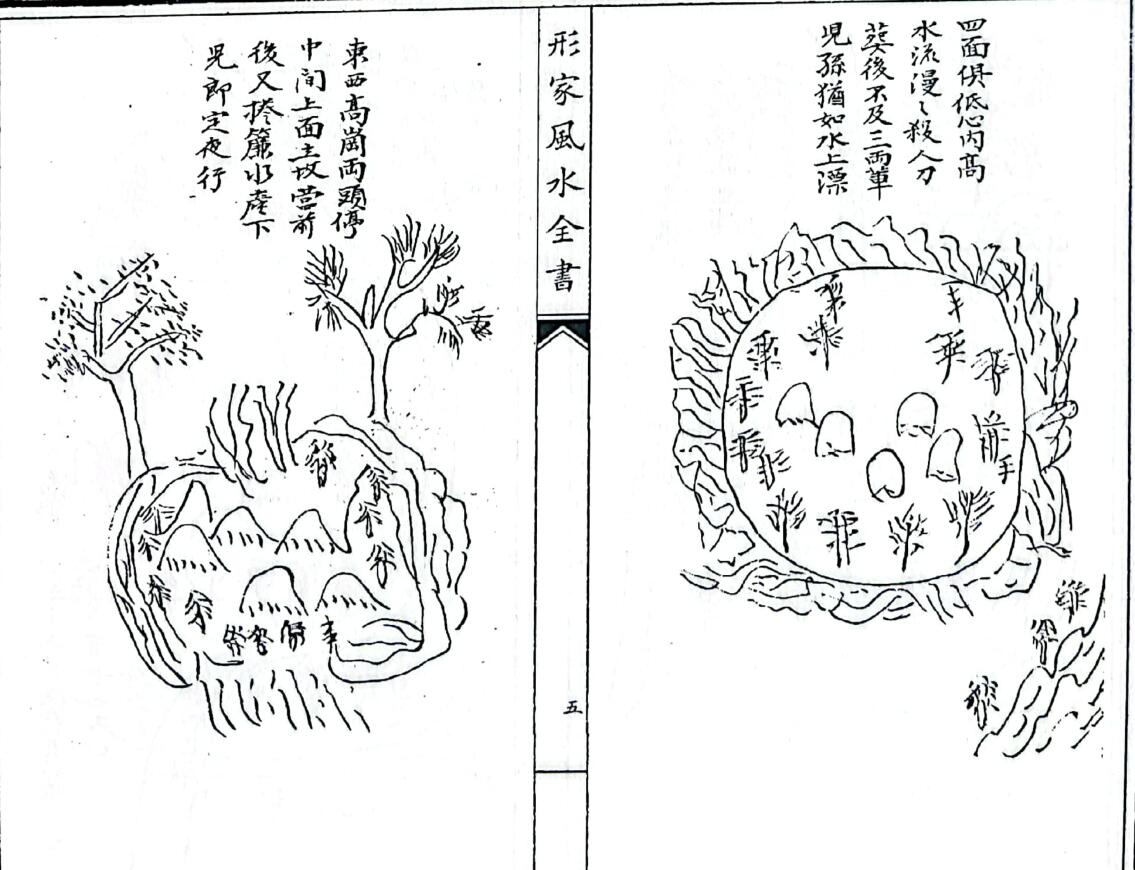 四面俱低心内高
水流漫々殺人刀
葬後不及三両軰
児孫猶如水上漂
形家風水全書
五
東西高崗両頭停
中间上面土坟营前
後又捲簾水産下
児郎定夜行